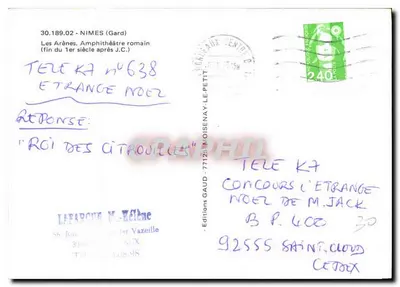 30.189.02 - NIMES (Gard)
Les Arènes, Amphithéâtre romain
(fin du 1er siècle après J.C.)
TELE K7 n° 638
ETRANGE NOEL
REPONSE:
"ROI DES CITROUILLES"
LAFARGUE M-Hélène
Editions GAUD - 77121 MOISENAY-LE-PETIT
2,40
TELE K7
CONCOURS L'ETRANGE
NOEL DE M. JACK
B P 400
30
92555 SAINT-CLOUD
CEDEX